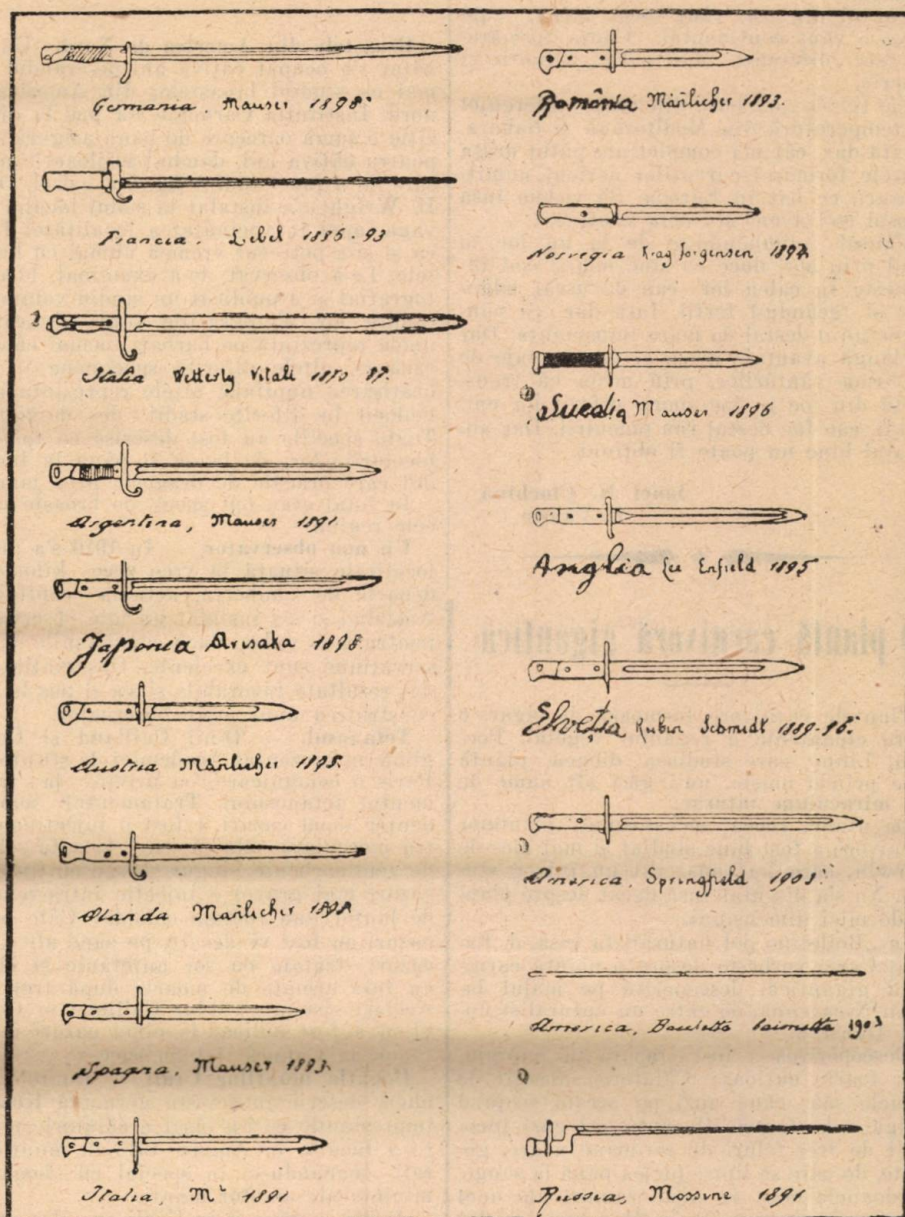 Germania, Mauser 1898.
Francia, Lebel 1886-93
Italia Vetterly Vitali 1870 87.
Argentina, Mauser 1891
Japonia Arisaka 1898.
Austria Mãnlicher 1895.
Olanda Mãnlicher 1895.
Spagna, Mauser 1893.
Italia, Mˡ 1891
România Mãnlicher 1893.
Norvegia Krag Jorgensen 1894.
Suedia Mauser 1896
Anglia Lee Enfield 1895
Elveția Rubin Schmidt 1889-96.
America, Springfield 1903.
America, Baghetă baionetă 1903
Russia, Mossine 1891
plantă carnivoră gigantică